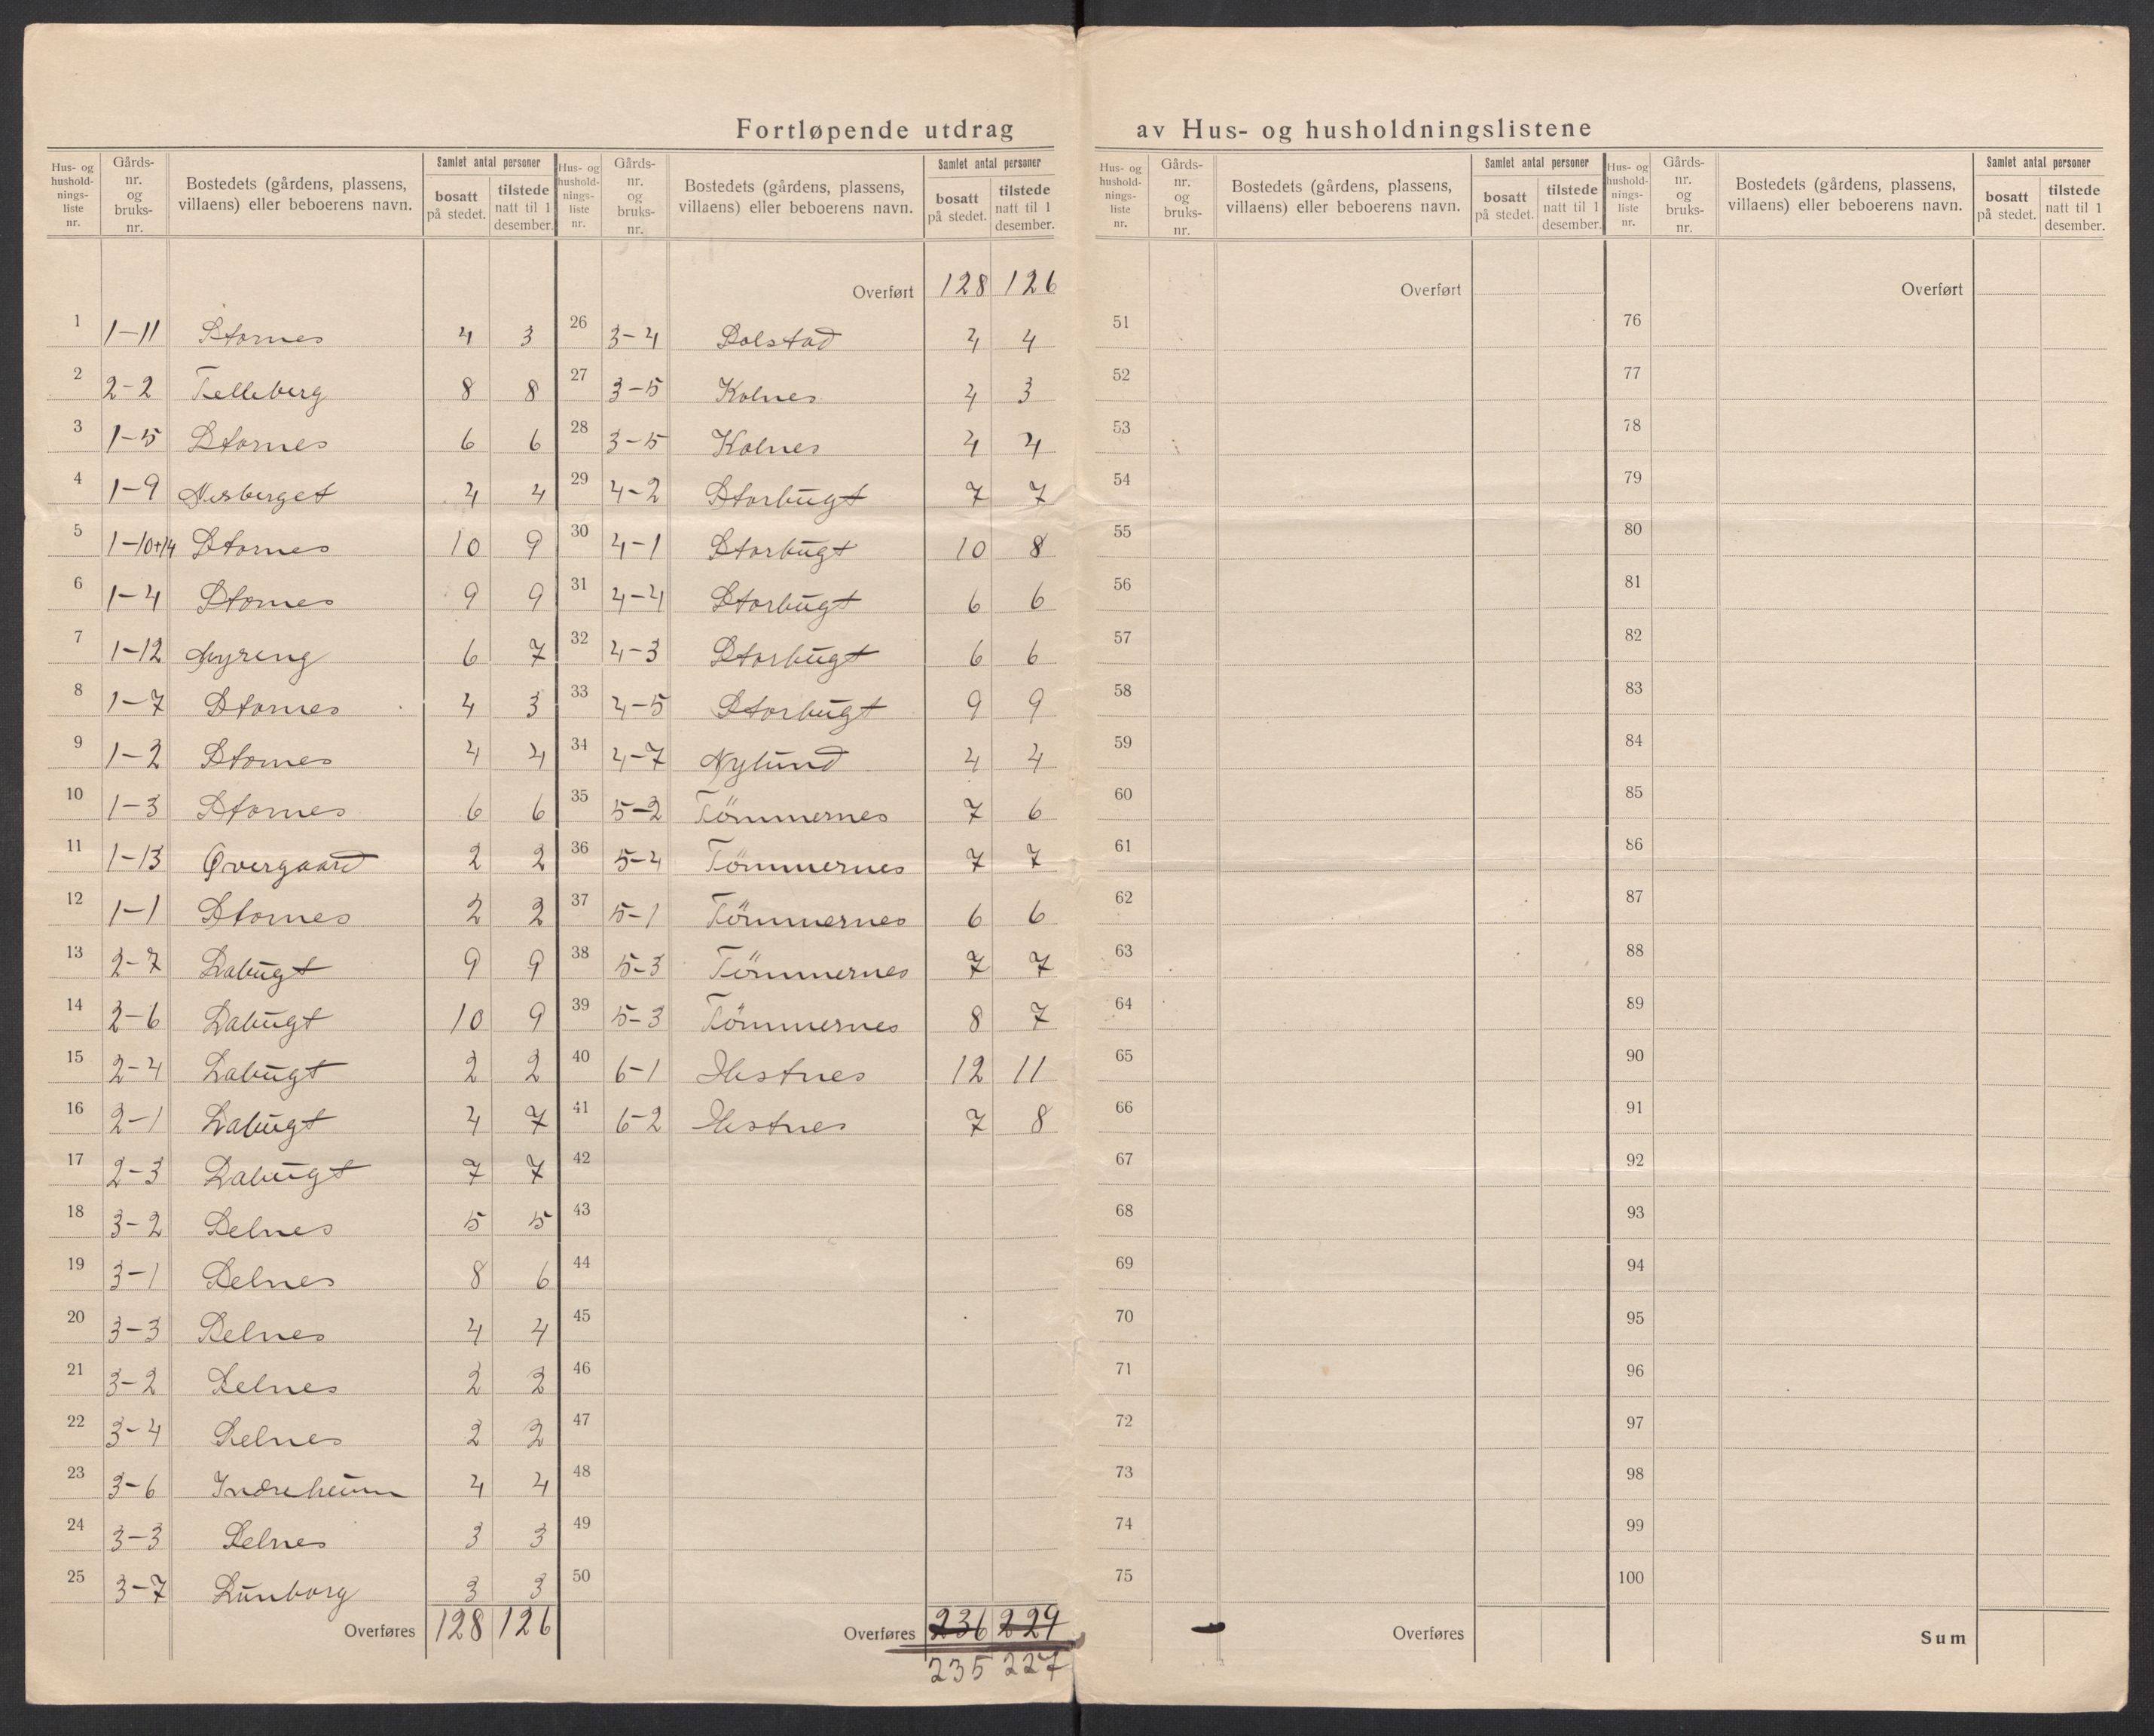 Fortløpende utdrag av Hus- og husholdningslistene
Hus- og hushold-nings-liste nr. Gårds-nr. og bruks-nr. Bostedets (gårdens, plassens, villaens) eller beboerens navn. Samlet antal personer bosatt på stedet. tilstede natt til 1 desember.
1 1-11 Stornes 4 3
2 2-2 Telleberg 8 8
3 1-5 Stornes 6 6
4 1-9 Nesberget 4 4
5 1-10+14 Stornes 10 9
6 1-4 Stornes 9 9
7 1-12 Nyreng 6 7
8 1-7 Stornes 4 3
9 1-2 Stornes 4 4
10 1-3 Stornes 6 6
11 1-13 Øvergaard 2 2
12 1-1 Stornes 2 2
13 2-7 Labugt 9 9
14 2-6 Labugt 10 9
15 2-4 Labugt 2 2
16 2-1 Labugt 4 7
17 2-3 Labugt 7 7
18 3-2 Selnes 5 5
19 3-1 Selnes 8 6
20 3-3 Selnes 4 4
21 3-2 Selnes 2 2
22 3-4 Selnes 2 2
23 3-6 Indreheim 4 4
24 3-3 Selnes 3 3
25 3-7 Lunborg 3 3
Overføres 128 126
Hus- og hushold-nings-liste nr. Gårds-nr. og bruks-nr. Bostedets (gårdens, plassens, villaens) eller beboerens navn. Samlet antal personer bosatt på stedet. tilstede natt til 1 desember.
Overført 128 126
26 3-4 Solstad 4 4
27 3-5 Kolnes 4 3
28 3-5 Kolnes 4 4
29 4-2 Storbugt 7 7
30 4-1 Storbugt 10 8
31 4-4 Storbugt 6 6
32 4-3 Storbugt 6 6
33 4-5 Storbugt 9 9
34 4-7 Nylund 4 4
35 5-2 Tömmernes 7 6
36 5-4 Tömmernes 7 7
37 5-1 Tömmernes 6 6
38 5-3 Tömmernes 7 7
39 5-3 Tömmernes 8 7
40 6-1 Hestnes 12 11
41 6-2 Hestnes 7 8
42
43
44
45
46
47
48
49
50
Overføres 236 229
235 227
Hus- og hushold-nings-liste nr. Gårds-nr. og bruks-nr. Bostedets (gårdens, plassens, villaens) eller beboerens navn. Samlet antal personer bosatt på stedet. tilstede natt til 1 desember.
Overført
51
52
53
54
55
56
57
58
59
60
61
62
63
64
65
66
67
68
69
70
71
72
73
74
75
Overføres
Hus- og hushold-nings-liste nr. Gårds-nr. og bruks-nr. Bostedets (gårdens, plassens, villaens) eller beboerens navn. Samlet antal personer bosatt på stedet. tilstede natt til 1 desember.
Overført
76
77
78
79
80
81
82
83
84
85
86
87
88
89
90
91
92
93
94
95
96
97
98
99
100
Sum